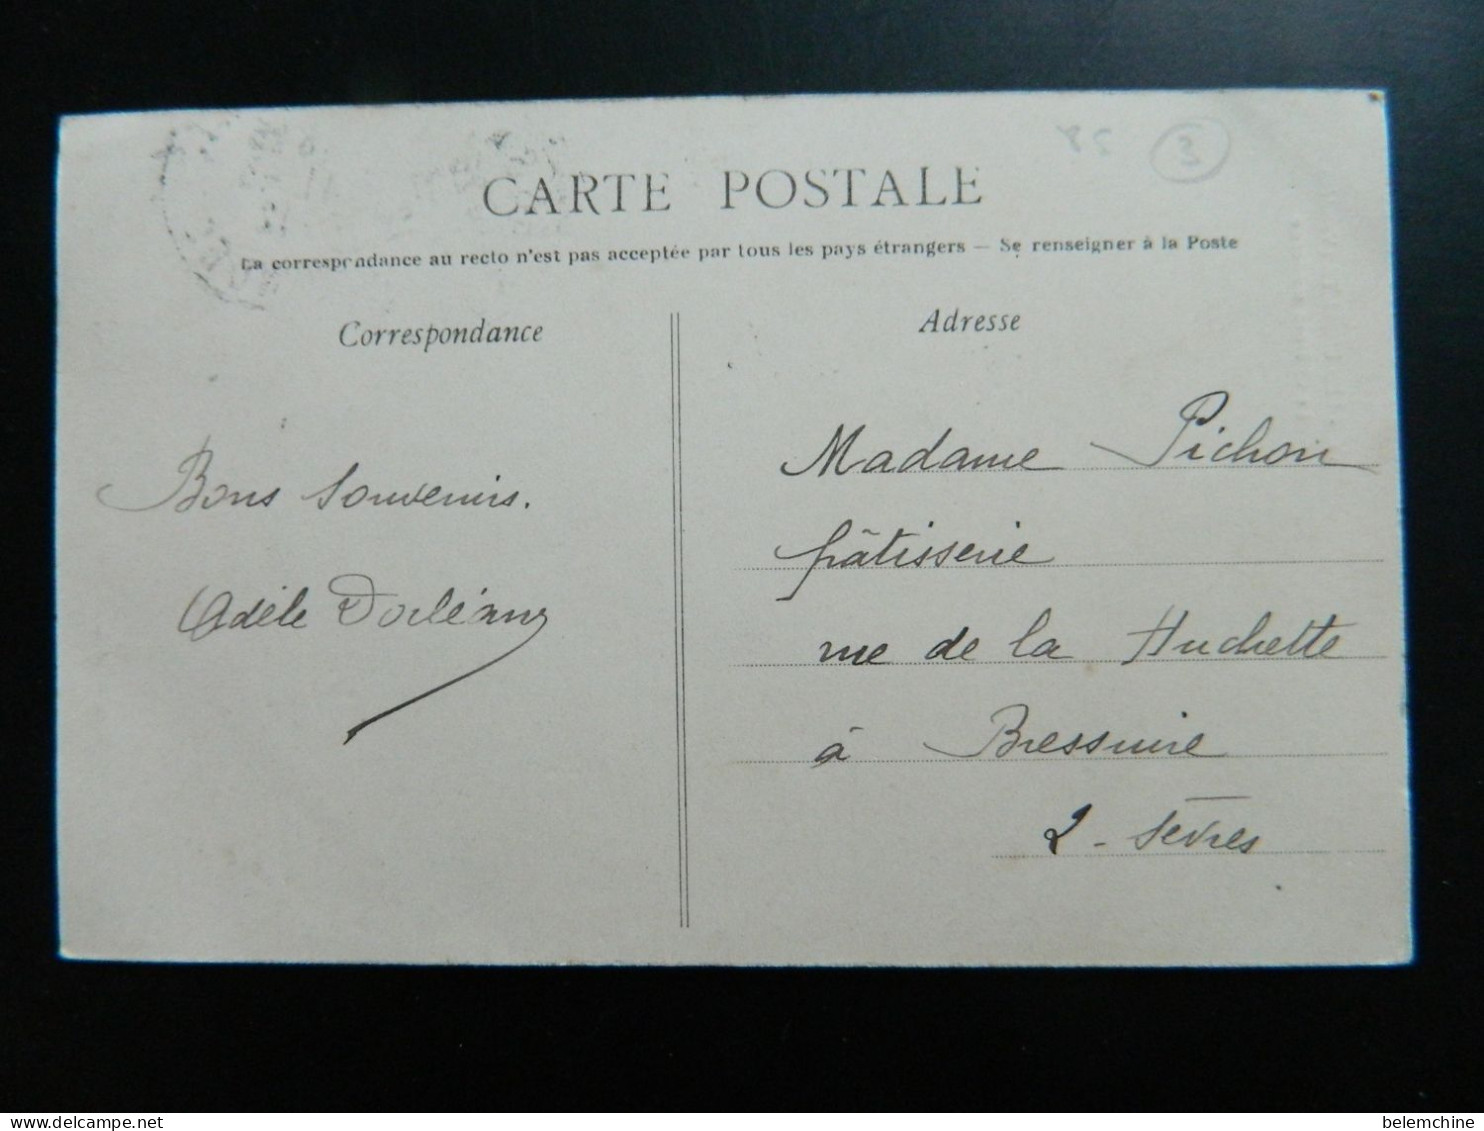 CARTE POSTALE
La correspondance au recto n'est pas acceptée par tous les pays étrangers — Se renseigner à la Poste
Correspondance
Bons Souvenirs.
Adèle Dorléans
Adresse
Madame Pichon
pâtisserie
rue de la Huchette
à Bressuire
2-Sèvres
belemchine